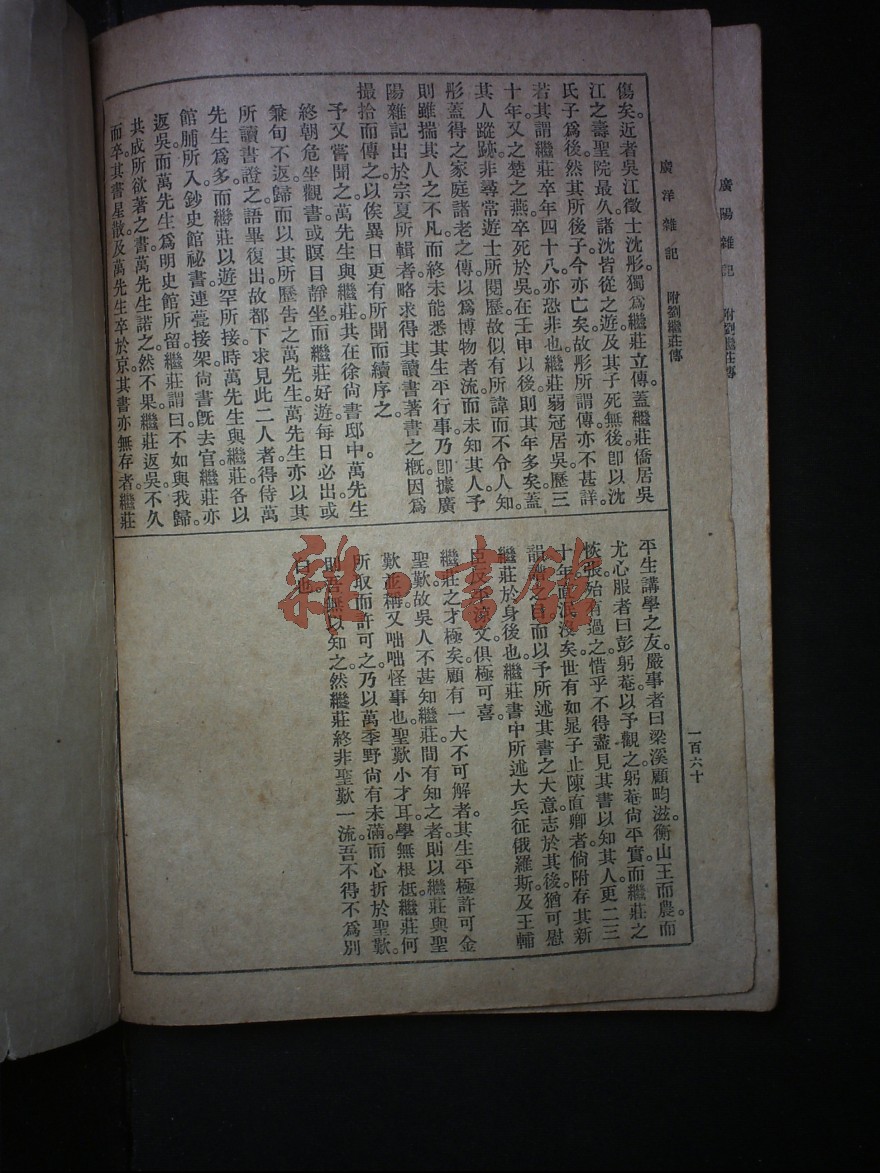 廣洋雜記 附劉繼莊傳
一百六十
傷矣。近者吳江徵士沈彤。獨爲繼莊立傳。蓋繼莊僑居吳
江之壽聖院最久。諸沈皆從之遊。及其子死無後。卽以沈
氏子爲後。然其所後子。今亦亡矣。故彤所謂傳。亦不甚詳。
若其謂繼莊卒年四十八。亦恐非也。繼莊弱冠居吳。歷三
十年。又之楚之燕。卒死於吳。在壬申以後。則其年多矣。蓋
其人蹤跡。非尋常遊士所閱歷。故似有所諱。而不令人知。
彤蓋得之家庭諸老之傳。以爲博物者流。而未知其人。予
則雖揣其人之不凡。而終未能悉其生平行事。乃卽據廣
陽雜記出於宗夏所輯者。略求得其讀書著書之概。因爲
撮拾而傳之。以俟異日更有所聞而續序之。
予又嘗聞之。萬先生與繼莊共在徐尙書邸中。萬先生
終朝危坐觀書。或瞑目靜坐。而繼莊好遊。每日必出。或
兼旬不返。歸而以其所歷告之萬先生。萬先生亦以其
所讀書證之。語畢復出。故都下求見此二人者。得侍萬
先生爲多。而繼莊以遊。罕所接。時萬先生與繼莊各以
館脯所入。鈔史館祕書。連甍接架。尙書旣去官。繼莊亦
返吳。而萬先生爲明史館所留。繼莊謂曰。不如與我歸。
共成所欲著之書。萬先生諾之。然不果。繼莊返吳。不久
而卒。其書星散。及萬先生卒於京。其書亦無存者。繼莊
平生講學之友。嚴事者曰梁溪顧畇滋。衡山王而農。而
尤心服者曰彭躬菴。以予觀之。躬菴尙平實。而繼莊之
恢張殆有過之。惜乎不得盡見其書。以知其人。更二三
十年。直泯沒矣。世有如晁子止陳直卿者。倘附存其新
韻譜之目。而以予所述其書之大意志於其後。猶可慰
繼莊於身後也。繼莊書中所述大兵征俄羅斯及王輔
臣反平涼文。俱極可喜。
繼莊之才極矣。顧有一大不可解者。其生平極許可金
聖歎。故吳人不甚知繼莊。間有知之者。則以繼莊與聖
歎並稱。又咄咄怪事也。聖歎小才耳。學無根柢。繼莊何
所取而許可之。乃以萬季野尙有未滿。而心折於聖歎。
則吾無以知之。然繼莊終非聖歎一流。吾不得不爲別
白也。
廣陽雜記 附劉繼莊傳
雜書館